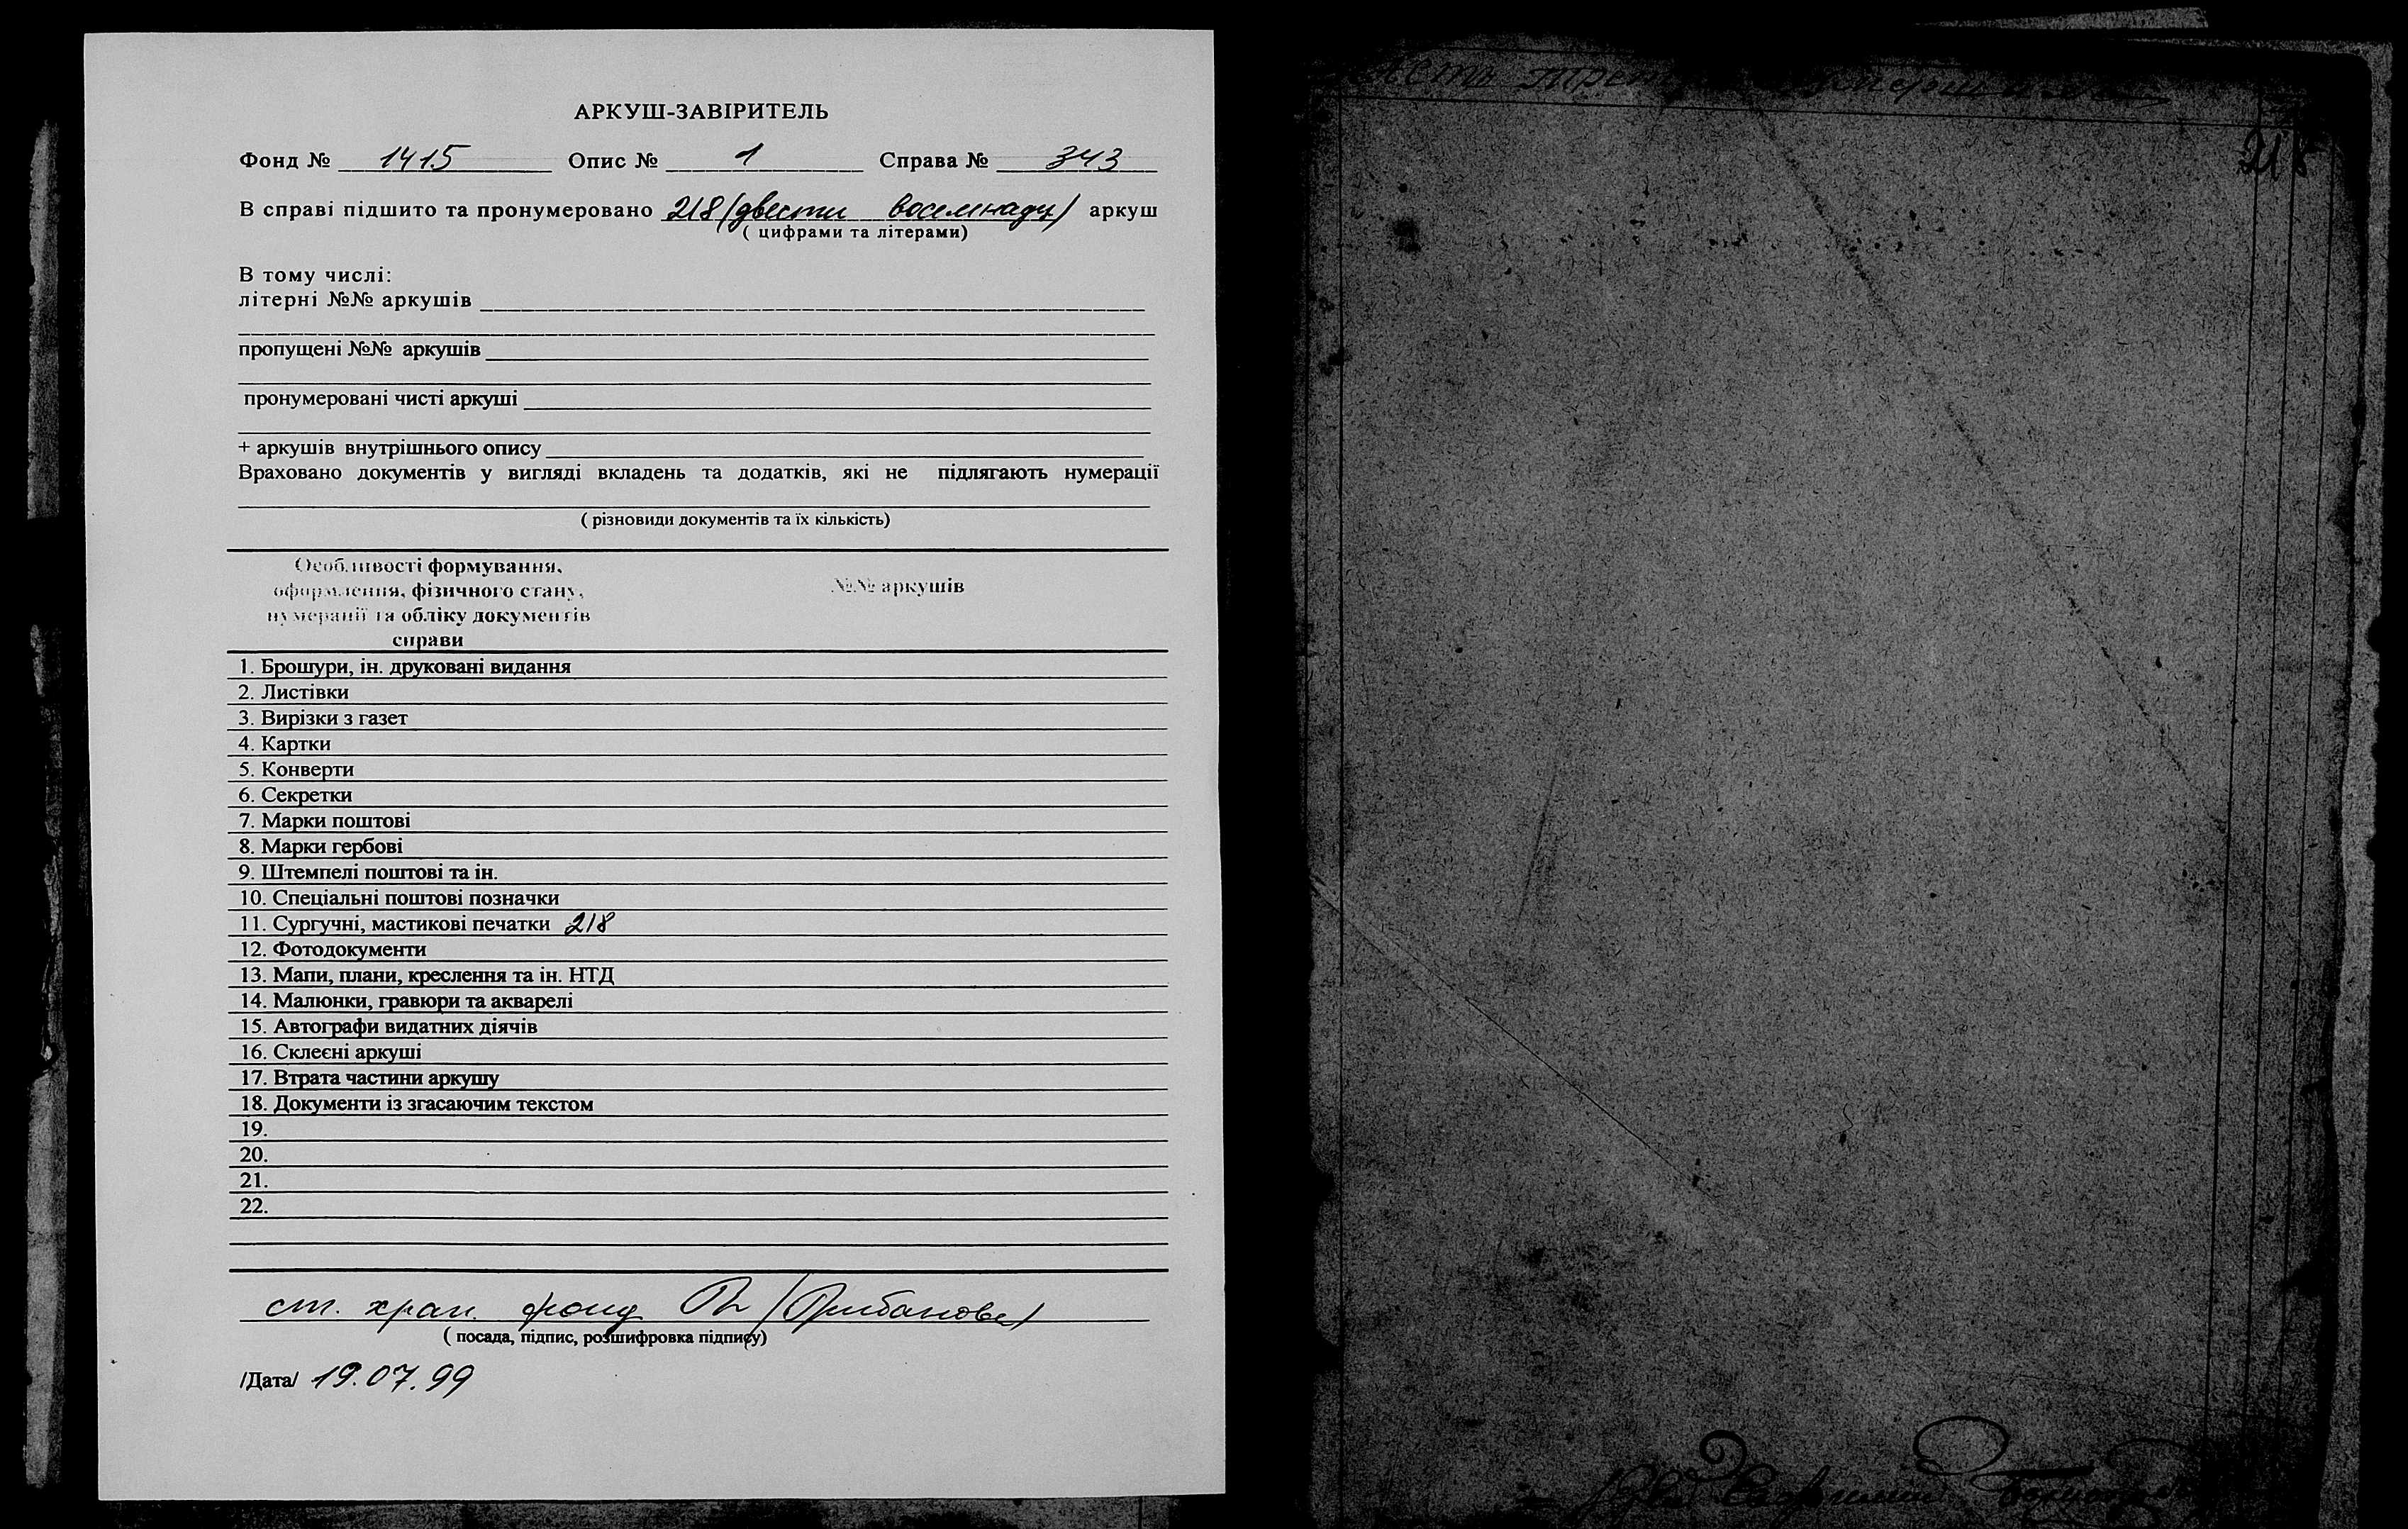 АРКУШ-ЗАВІРИТЕЛЬ
Фонд № 1415 Опис № 1 Справа № 343
В справі підшито та пронумеровано 218 (двести восемнадц) аркуш
( цифрами та літерами)
В тому числі:
літерні №№ аркушів
пропущені №№ аркушів
пронумеровані чисті аркуші
+ аркушів внутрішнього опису
Враховано документів у вигляді вкладень та додатків, які не підлягають нумерації
( різновиди документів та їх кількість)
Особливості формування, оформлення, фізичного стану, нумерації та обліку документів справи
№№ аркушів
1. Брошури, ін. друковані видання
2. Листівки
3. Вирізки з газет
4. Картки
5. Конверти
6. Секретки
7. Марки поштові
8. Марки гербові
9. Штемпелі поштові та ін.
10. Спеціальні поштові позначки
11. Сургучні, мастикові печатки 218
12. Фотодокументи
13. Мапи, плани, креслення та ін. НТД
14. Малюнки, гравюри та акварелі
15. Автографи видатних діячів
16. Склеєні аркуші
17. Втрата частини аркушу
18. Документи із згасаючим текстом
19.
20.
21.
22.
ст. хран. фонд
( посада, підпис, розшифровка підпису)
/Дата/ 19.07.99
218